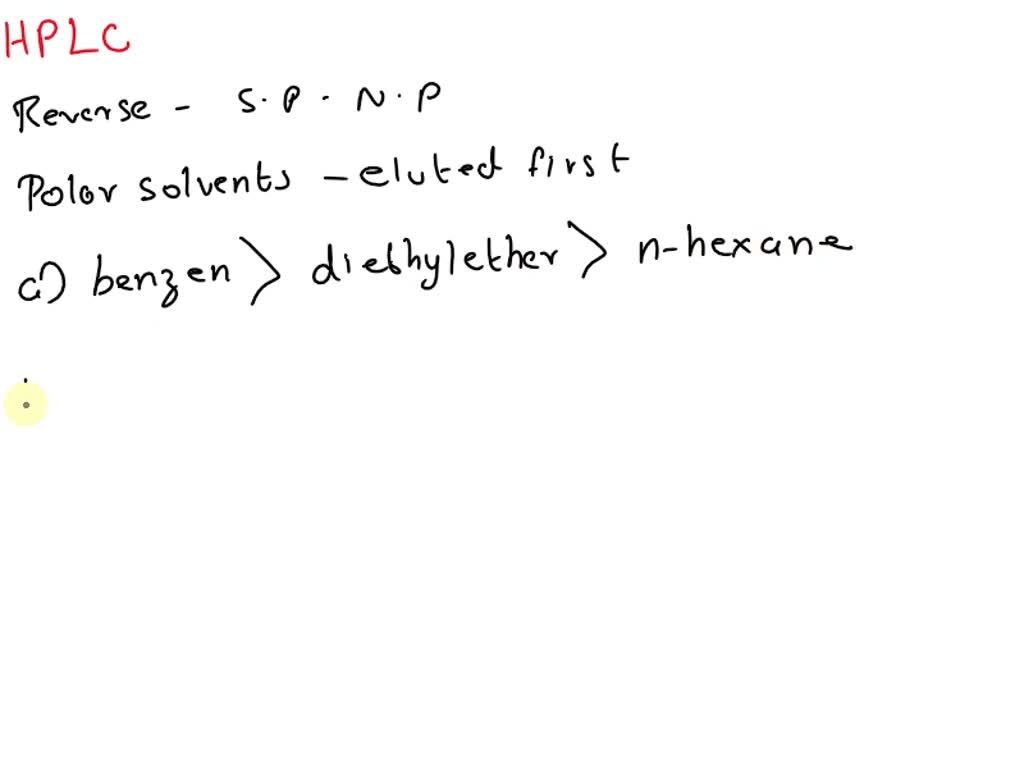 HPLC
Reverse - S.P. N.P
Polar solvents - eluted first
a) benzen > diethylether > n-hexane